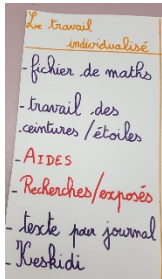 Le travail
individualisé
- fichier de maths
- travail des
ceintures / étoiles
- AIDES
- Recherches/exposés
- texte pour journal
- Keskidi